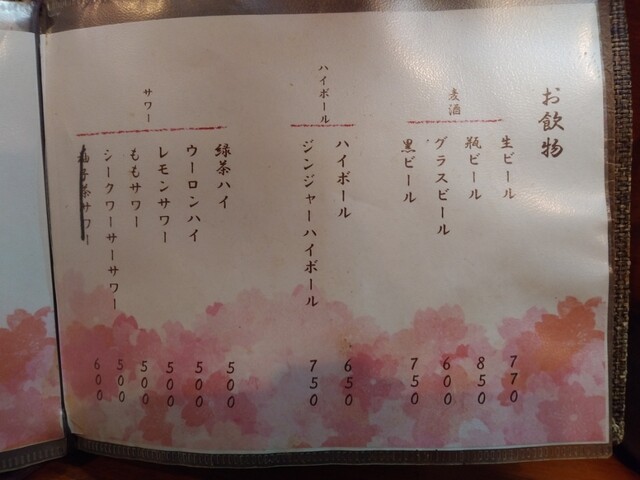 お飲物
麦酒
生ビール
770
瓶ビール
850
グラスビール
600
黒ビール
750
ハイボール
ハイボール
650
ジンジャーハイボール
750
サワー
緑茶ハイ
500
ウーロンハイ
500
レモンサワー
500
ももサワー
500
シークワーサーサワー
500
柚子茶サワー
600